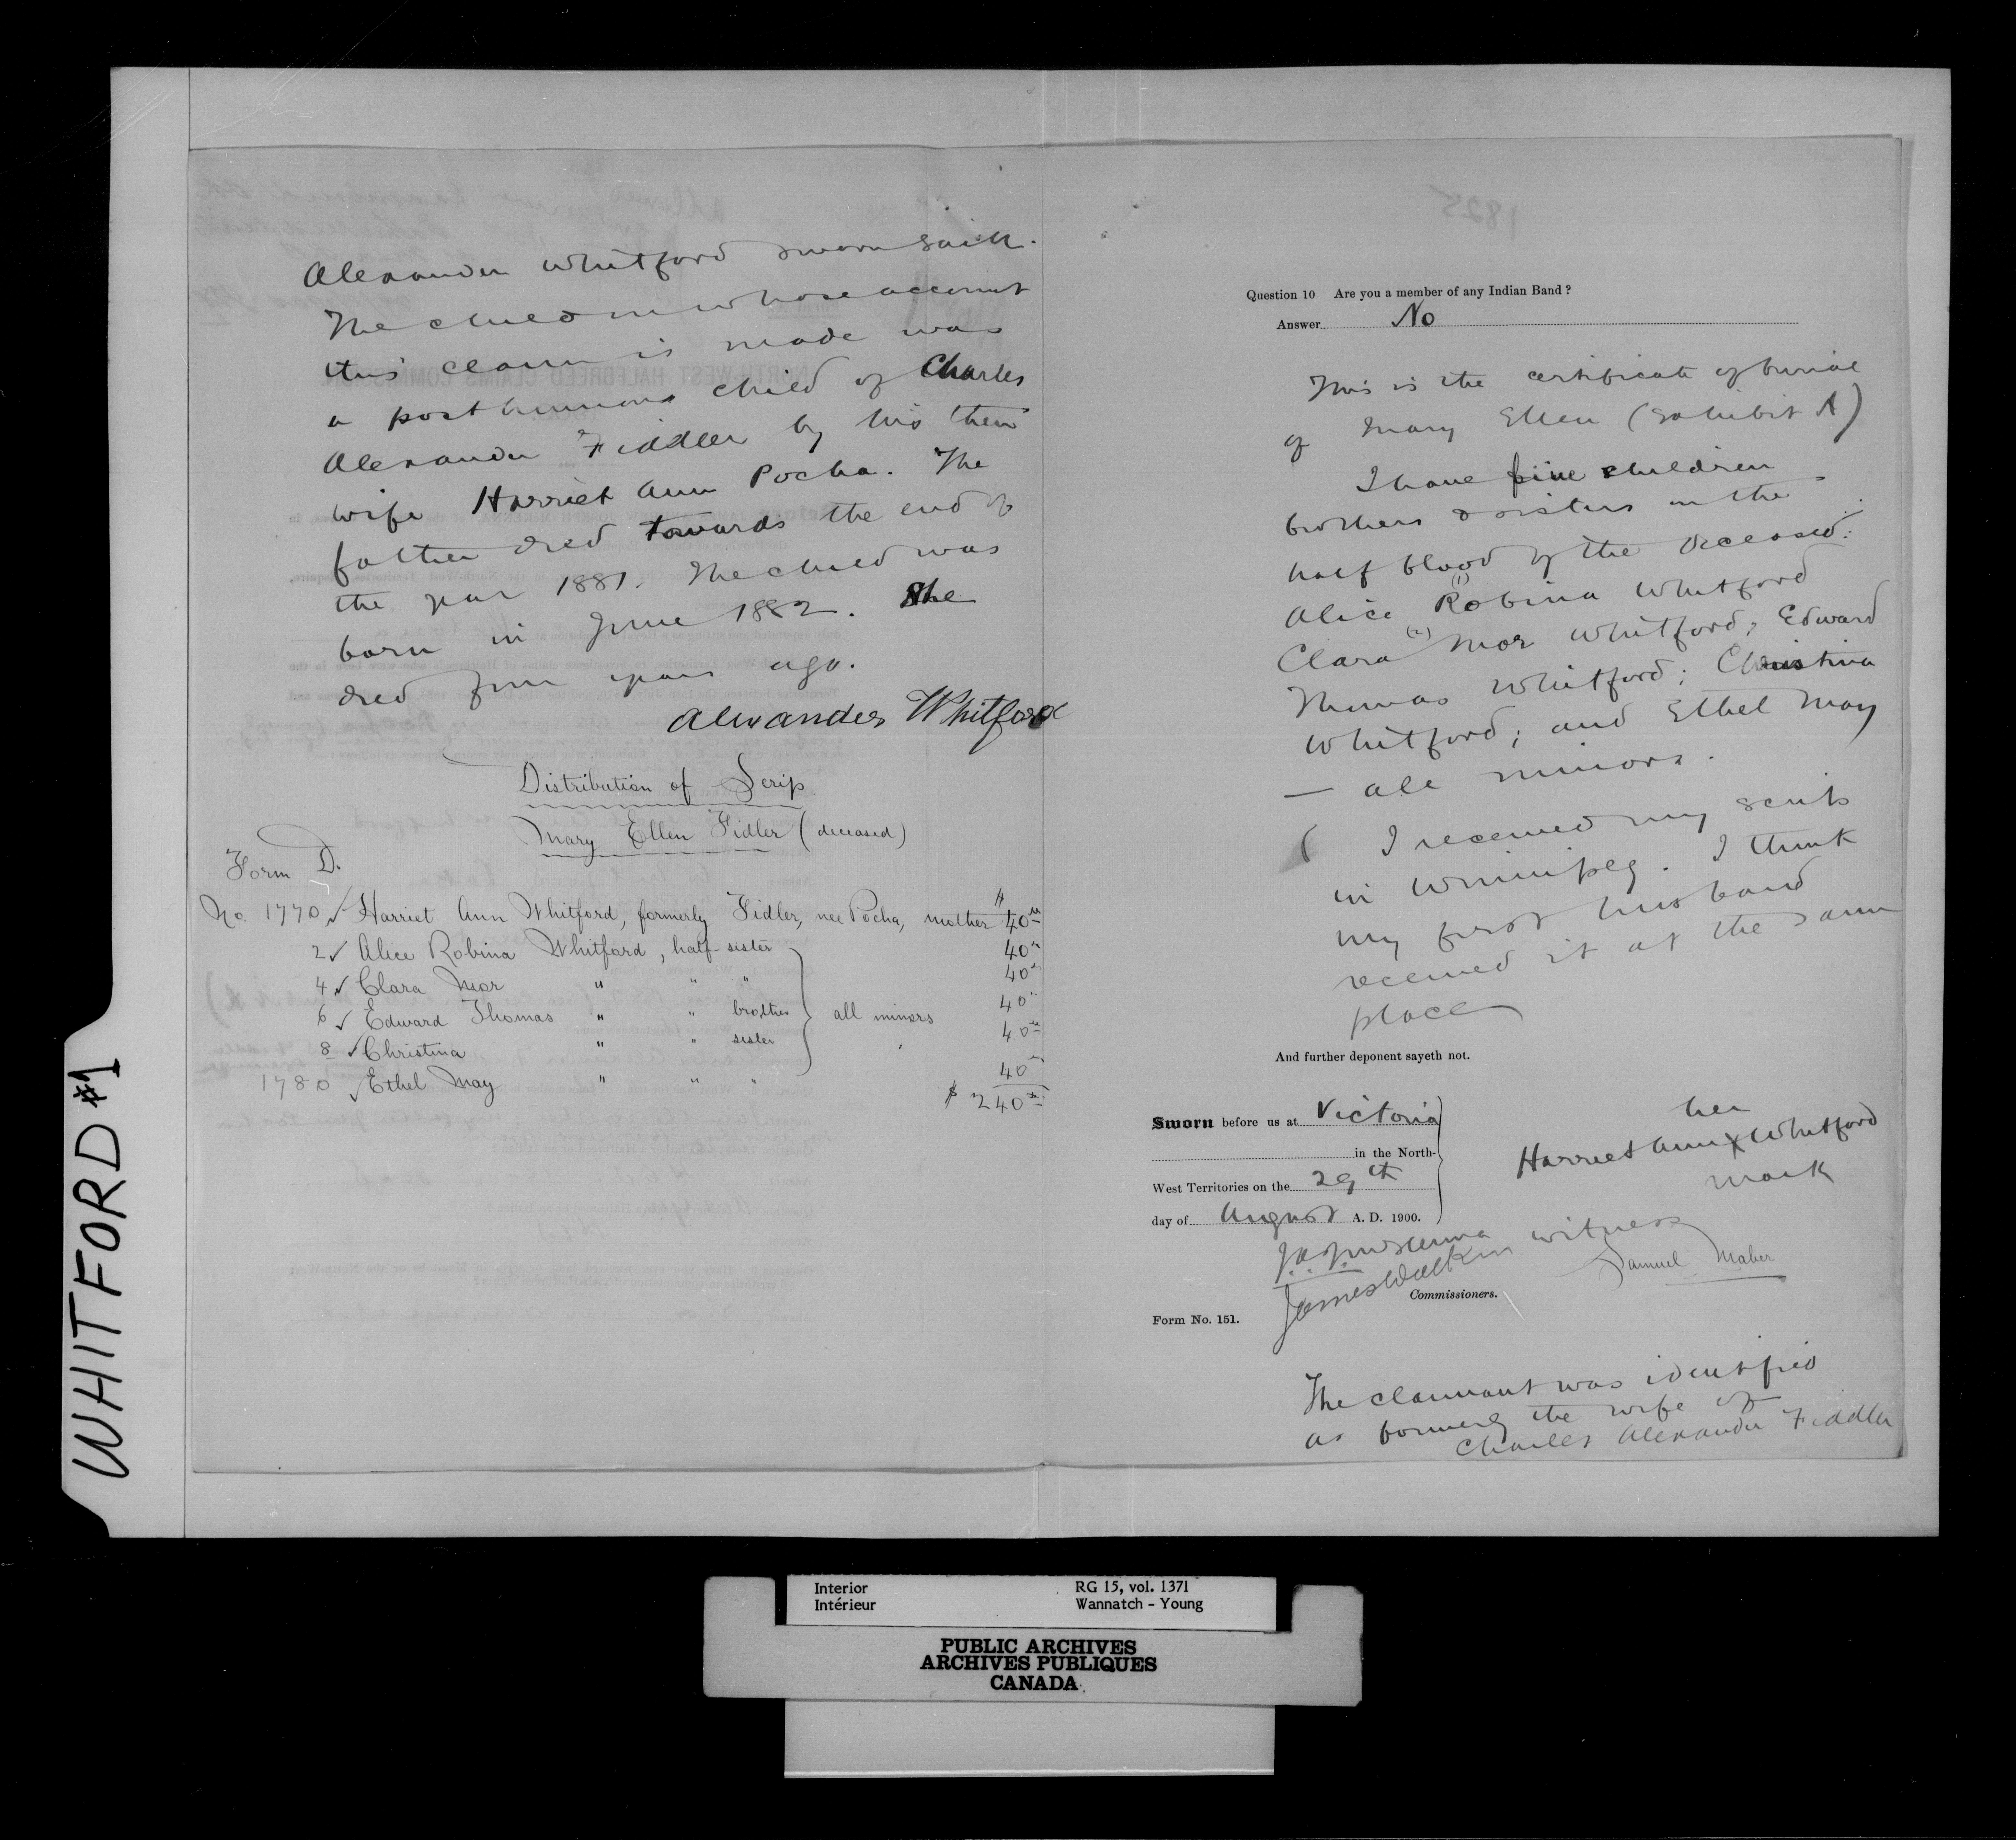 WHITFORD #1
Alexander Whitford sworn saith.
The child in whose account
this claim is made was
a posthumous child of Charles
Alexander Fiddler by his then
wife Harriet Ann Pocha. The
father died towards the end of
the year 1881. The child was
born in June 1882. She
died four years ago.
Alexander Whitford
Distribution of Scrip
Mary Ellen Fidler (deceased)
Form D.
No. 1770 ✓ Harriet Ann Whitford, formerly Fidler, nee Pocha, mother $40.00
2 ✓ Alice Robina Whitford, half-sister 40
4 ✓ Clara Mor " " " 40
6 ✓ Edward Thomas " " brother } all minors 40
8 ✓ Christina " " sister 40
1780 ✓ Ethel May " " " 40
$ 240
1825
Question 10 Are you a member of any Indian Band?
Answer No
This is the certificate of burial
of Mary Ellen (Exhibit A)
I have five children
brothers & sisters in the
half blood of the deceased:
Alice (1) Robina Whitford
Clara (2) Mor Whitford; Edward
Thomas Whitford; Christina
Whitford; and Ethel May
— all minors.
I received my scrip
in Winnipeg. I think
my first husband
received it at the same
place
And further deponent sayeth not.
Sworn before us at Victoria
in the North-
West Territories on the 29th
day of August A. D. 1900.
her
Harriet Ann X Whitford
mark
witness
Samuel Maber
J. A. J. McKenna
James Walker
Commissioners.
Form No. 151.
The claimant was identified
as formerly the wife of
Charles Alexander Fiddler
Interior RG 15, vol. 1371
Intérieur Wannatch - Young
PUBLIC ARCHIVES
ARCHIVES PUBLIQUES
CANADA